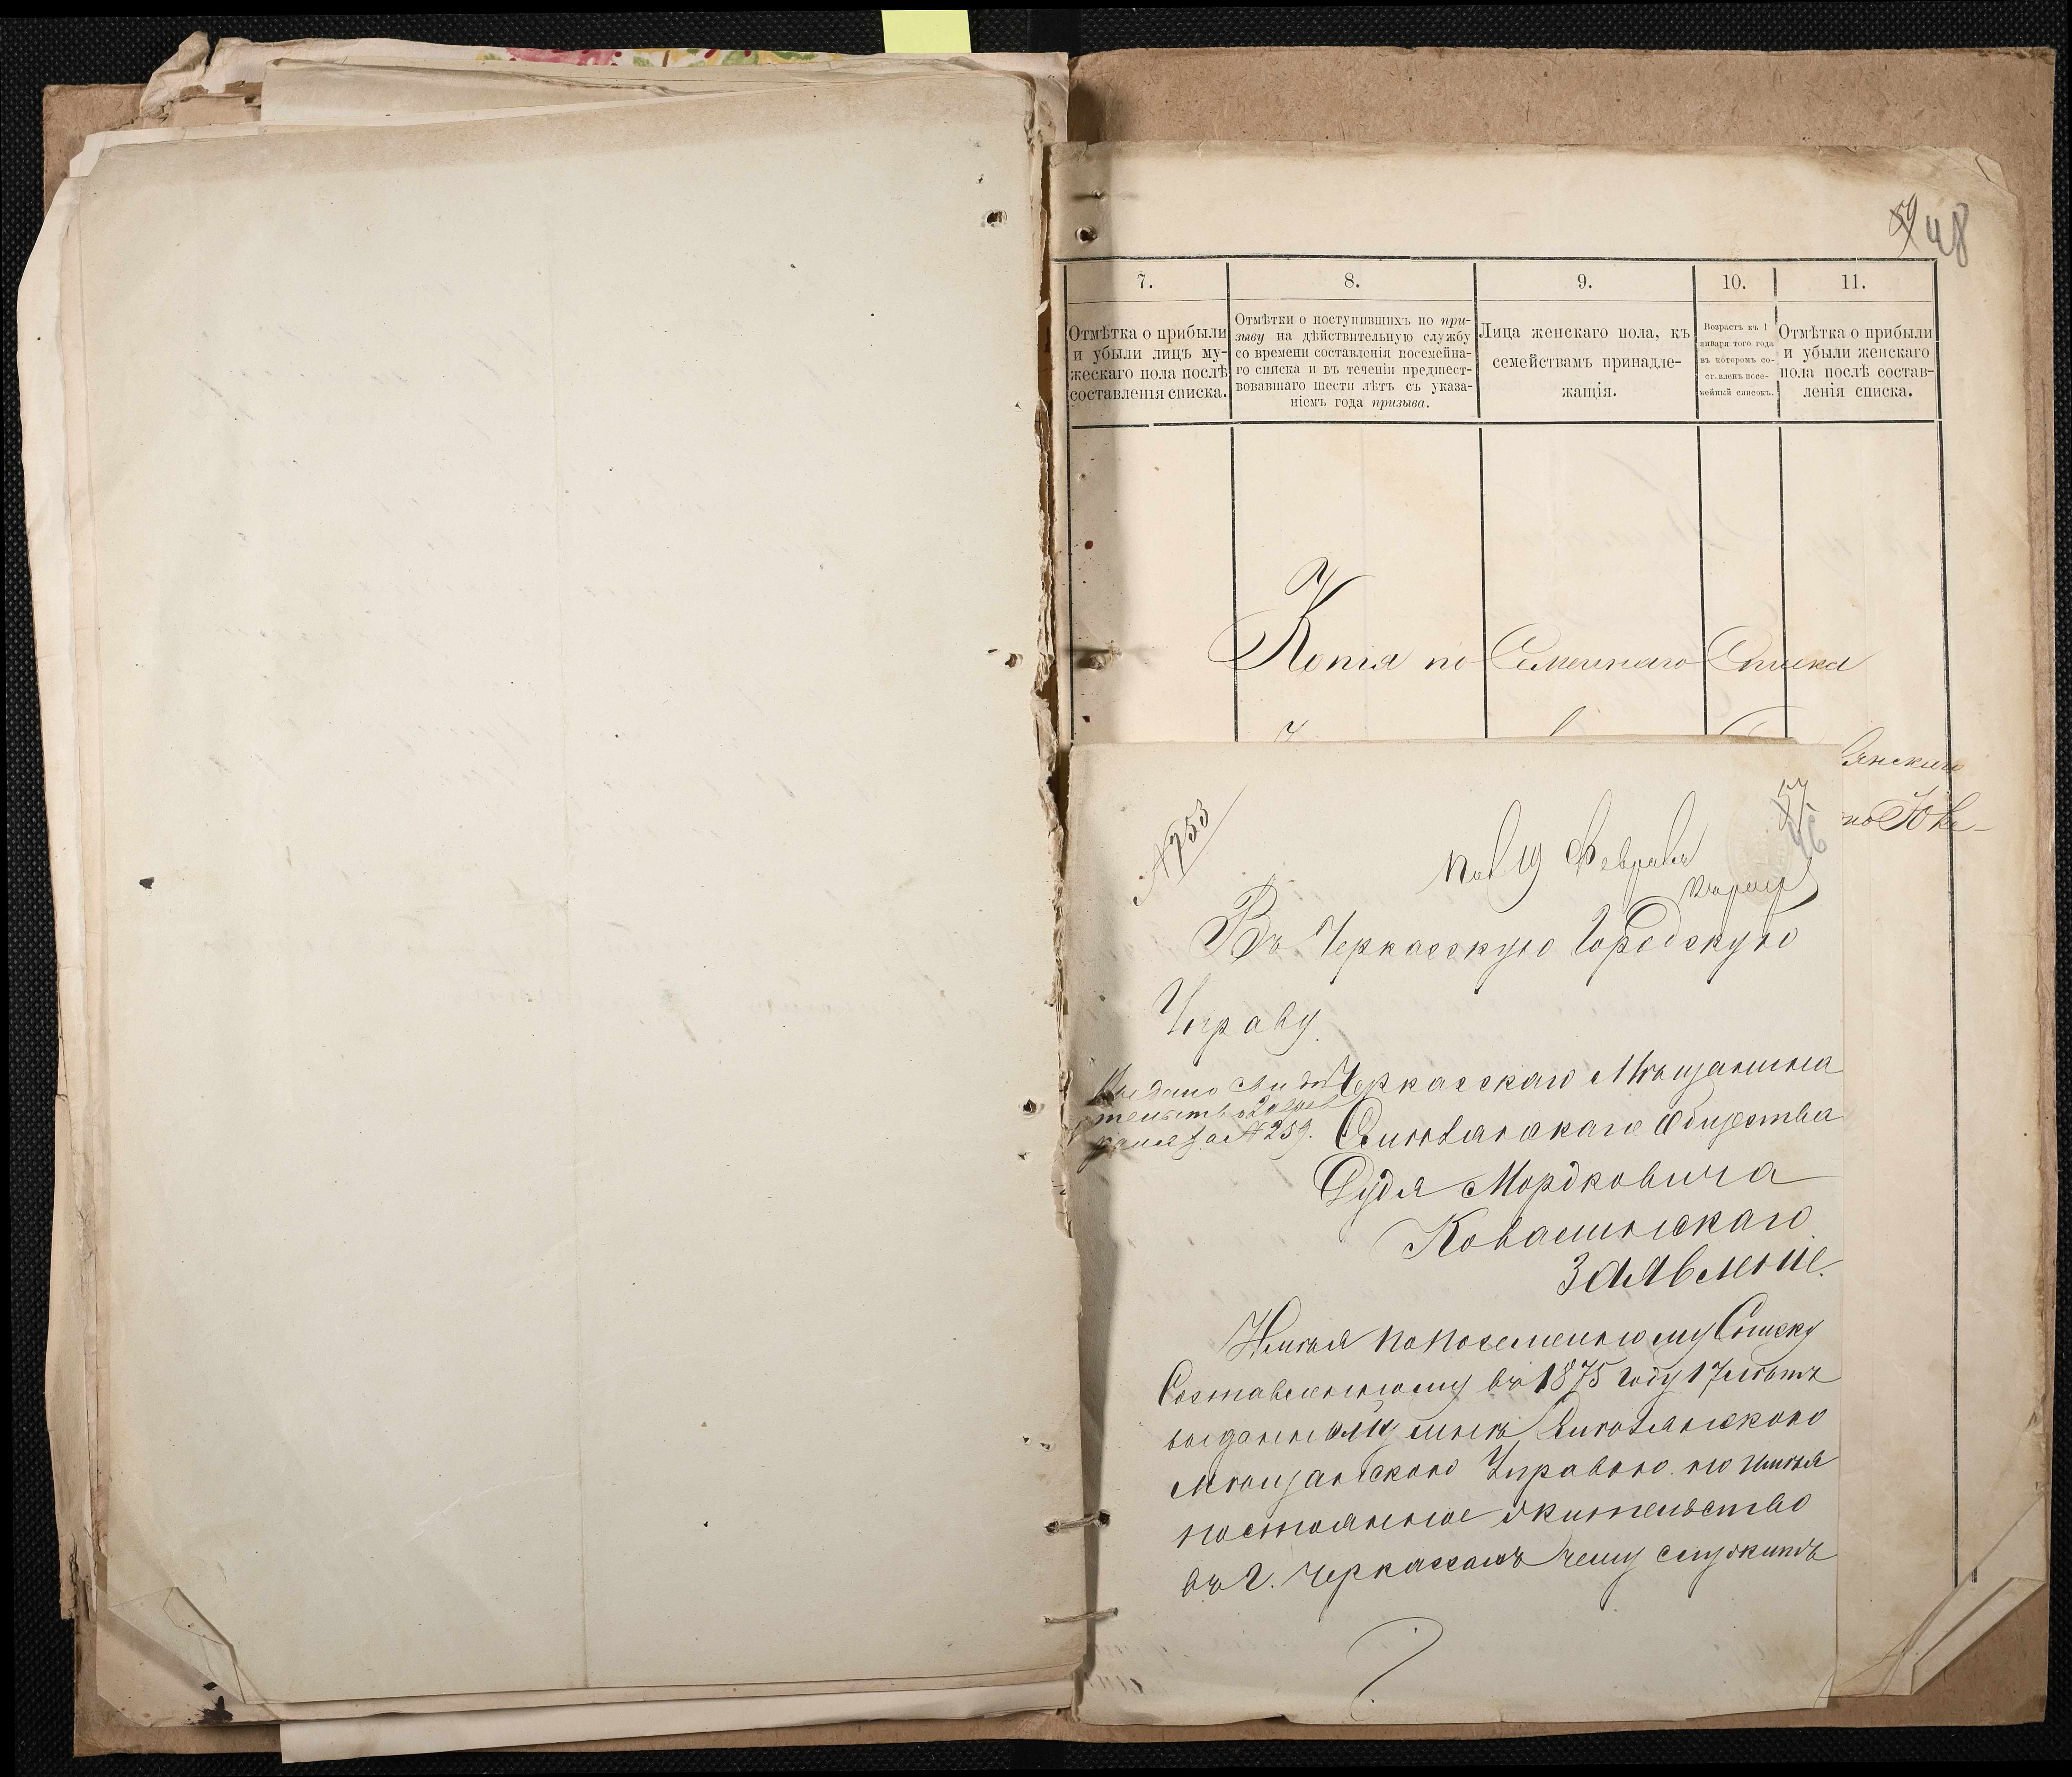 59 48
7.
Отмѣтка о прибыли
и убыли лицъ му-
жескаго пола послѣ
составленія списка.
8.
Отмѣтки о поступившихъ по при-
зыву на дѣйствительную службу
со времени составленія посемейна-
го списка и въ теченіи предшест-
вовавшаго шести лѣтъ съ указа-
ніемъ года призыва.
9.
Лица женскаго пола, къ
семействамъ принадле-
жащія.
10.
Возрастъ къ 1
января того года
въ которомъ со-
ставленъ посе-
мейный списокъ.
11.
Отмѣтка о прибыли
и убыли женскаго
пола послѣ состав-
ленія списка.
Копія по Семейнаго Списка
янскаго
по
57
46
№ 753
19 Февраля
Въ Черкасскую Городскую
Управу.
Выдано свидѣ
тельство
за № 259.
Черкасскаго Мѣщанина
Общества
Дудя Мордковича
Ковалинскаго
Заявленіе.
Имѣя по посемейному Списку
Составленному въ 1875 году 17 лѣтъ
выданному мнѣ
Мѣщанскою Управою. но имѣя
постоянное жительство
въ г. Черкассахъ чему служитъ